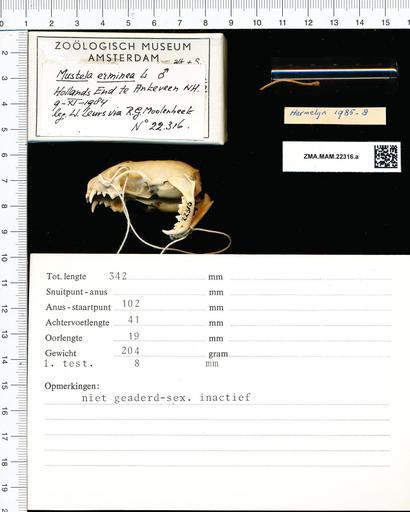 ZOÖLOGISCH MUSEUM
AMSTERDAM
Mustela erminea L ♂
Hollands End te Ankeveen NH.
9-XI-1984
leg. W. Leurs via R.G. Moolenbeek
N° 22.316.
Hermelyn 1985-8
ZMA.MAM.22316.a
22316
Tot. lengte 342 mm
Snuitpunt - anus mm
Anus - staartpunt 102 mm
Achtervoetlengte 41 mm
Oorlengte 19 mm
Gewicht 204 gram
l. test. 8 mm
Opmerkingen:
niet geaderd-sex. inactief